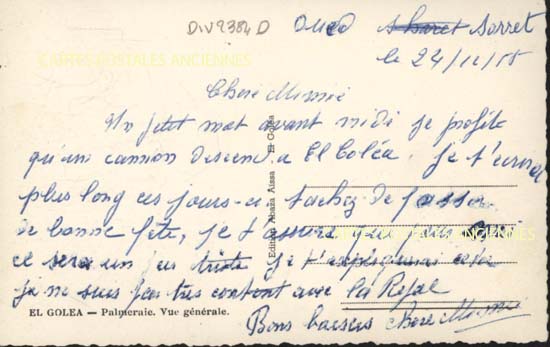 DIV9384D
Oued Sharet Sarret
le 24/12/55
CARTES POSTALES ANCIENNES
Chère Mimie
Un petit mot avant midi je profite
qu'un camion descend a El Goléa. Je t'écrirai
plus long ces jours-ci. tachez de passer
de bonne fête, je t'assure que pour moi
ce sera un peu triste je t'expliquerai cela
je ne suis pas très content avec la Refal
Bons baisers chère Mimie
EL GOLEA — Palmeraie. Vue générale.
Edition Abaza Aissa - El Goléa
CARTES POSTALES ANCIENNES